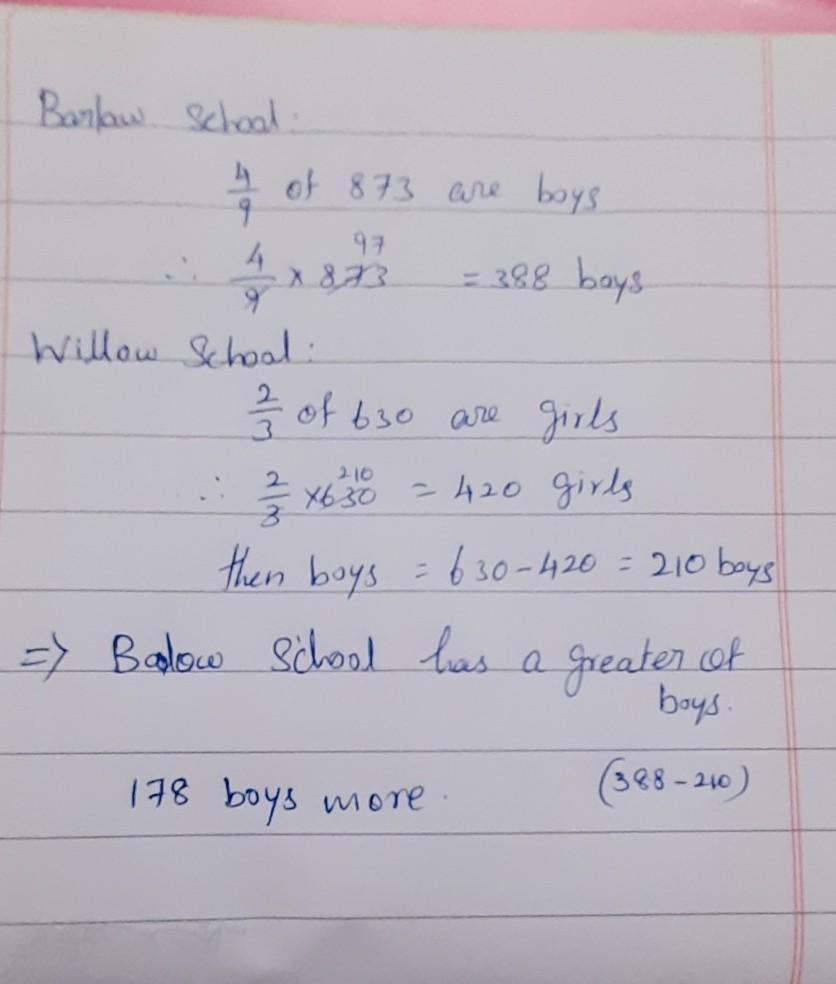 Barlow School:
4/9 of 873 are boys
97
∴ 4/9 × 873 = 388 boys
Willow School:
2/3 of 630 are girls
210
∴ 2/3 ×630 = 420 girls
then boys = 630-420 = 210 boys
=> Balow School has a greater of
boys.
178 boys more. (388-210)